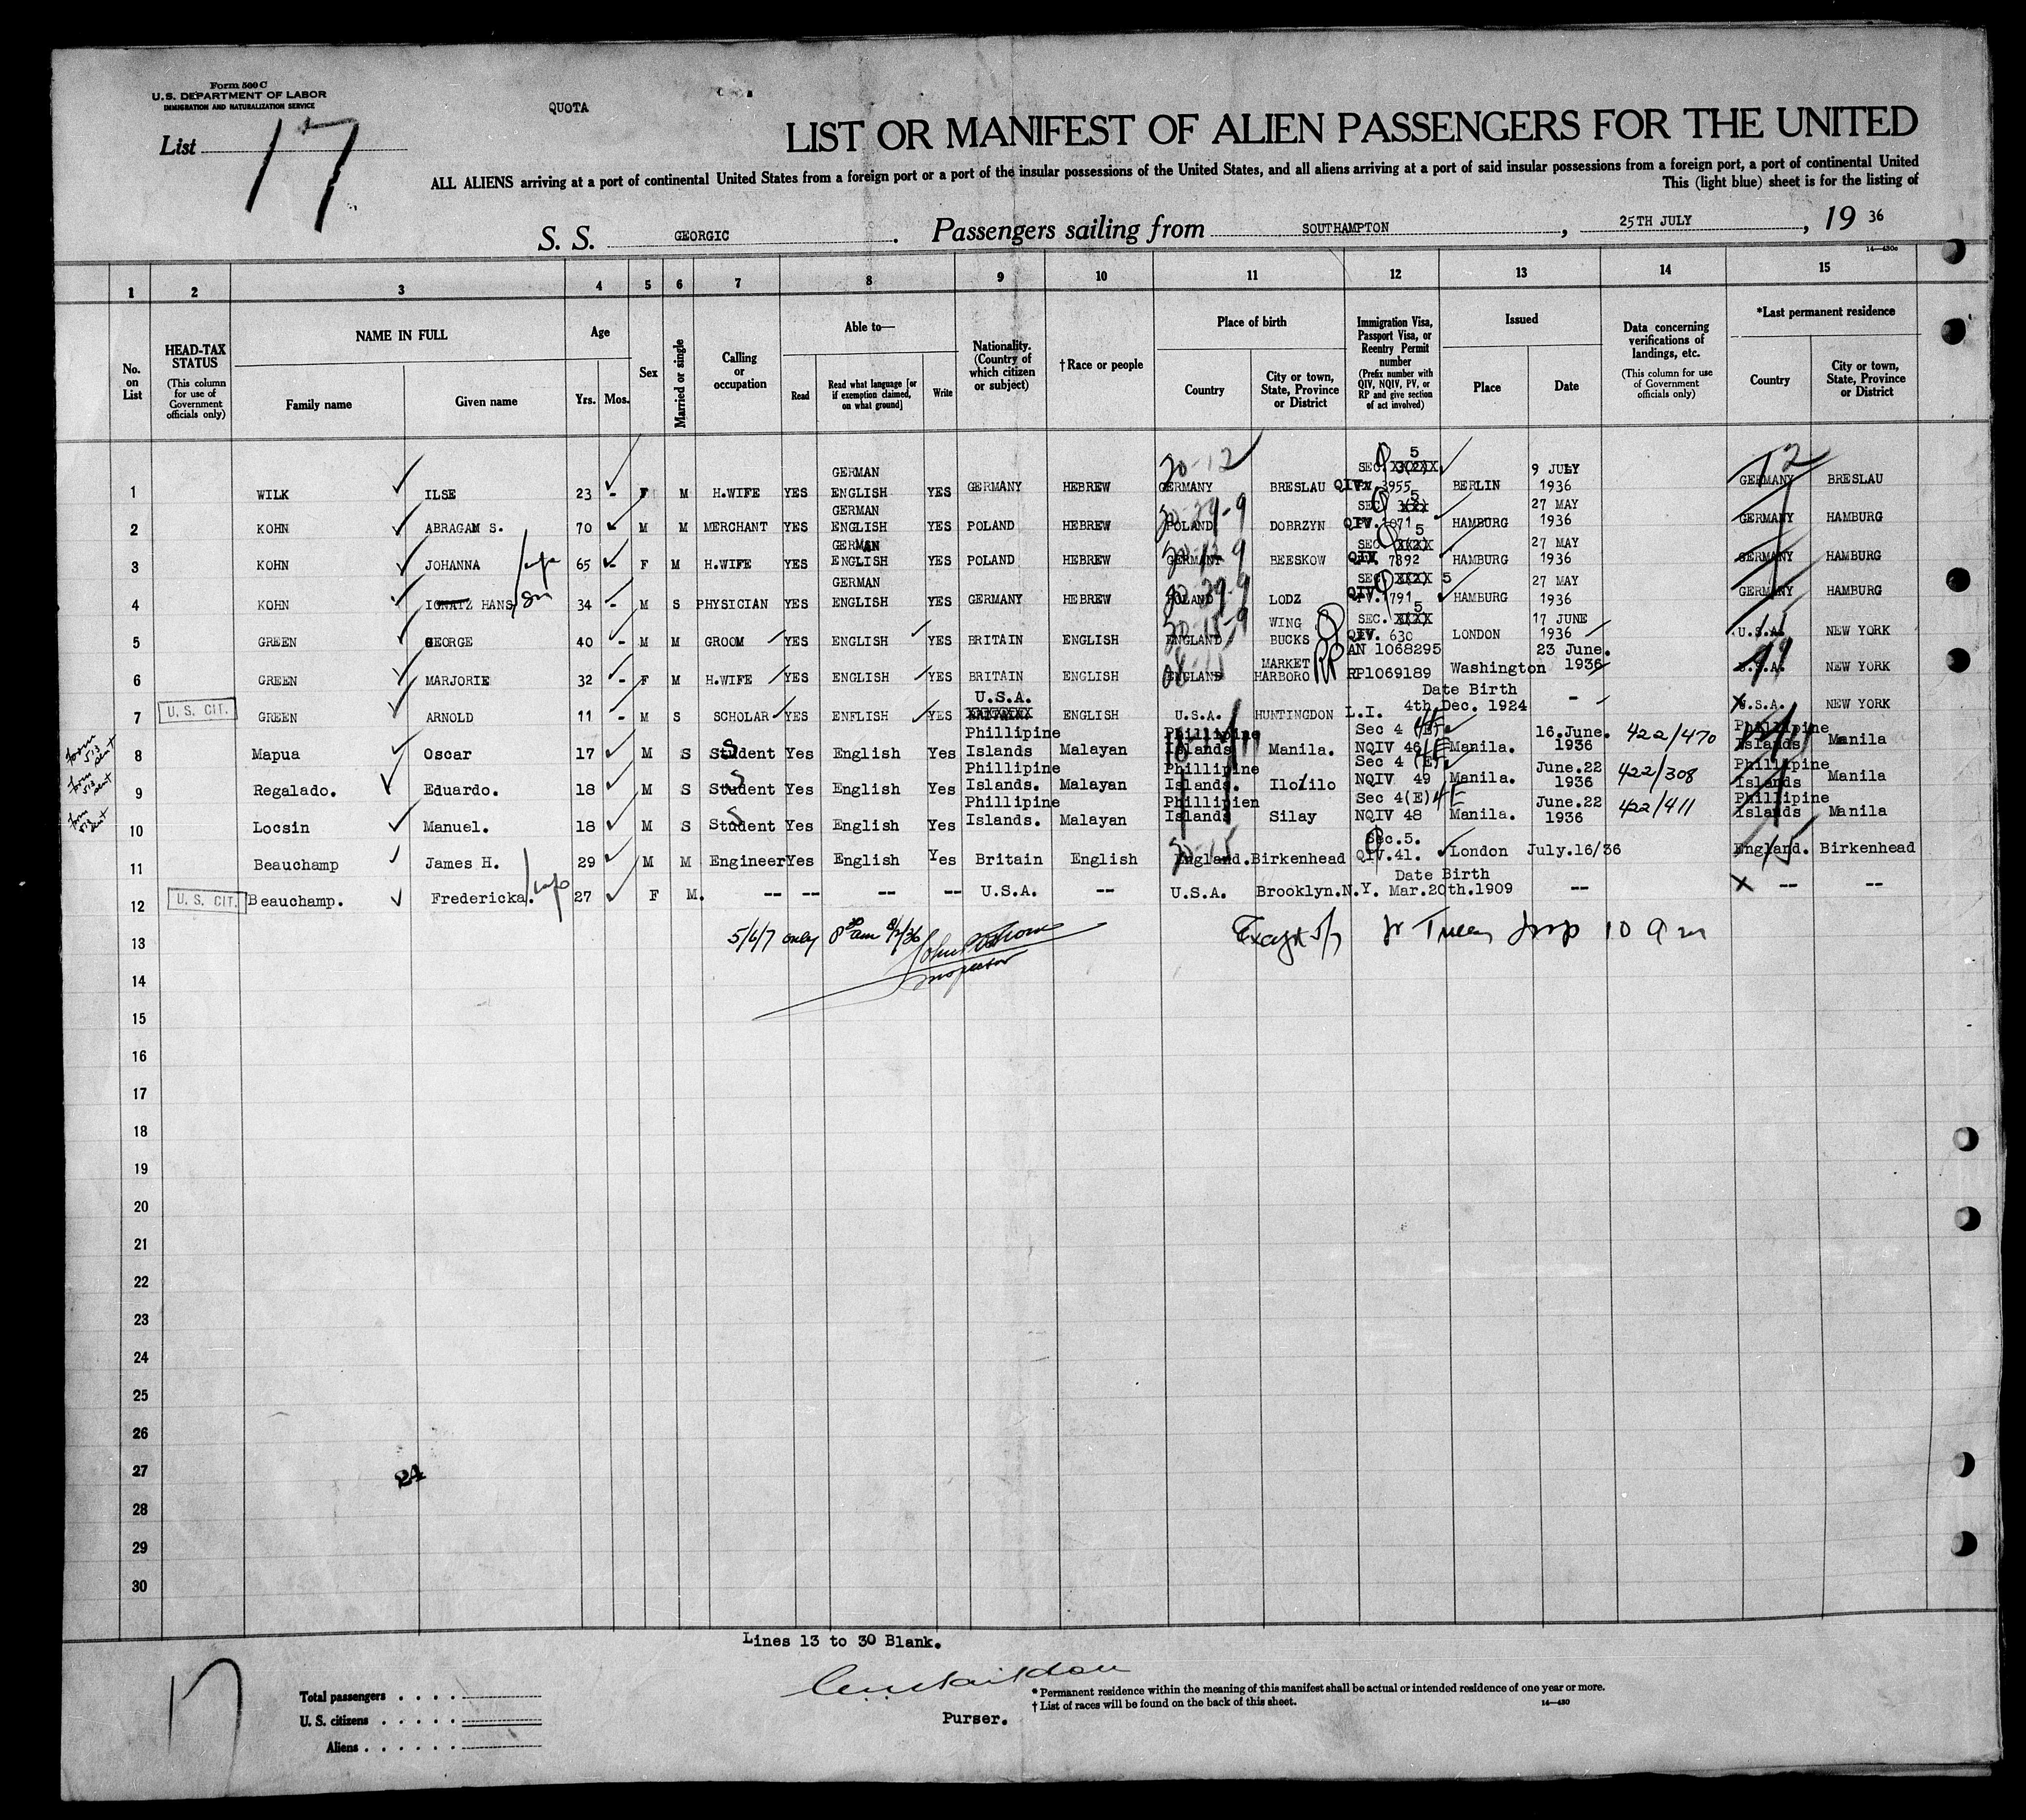 Form 500 C
U.S. DEPARTMENT OF LABOR
IMMIGRATION AND NATURALIZATION SERVICE
QUOTA
List 17
LIST OR MANIFEST OF ALIEN PASSENGERS FOR THE UNITED
ALL ALIENS arriving at a port of continental United States from a foreign port or a port of the insular possessions of the United States, and all aliens arriving at a port of said insular possessions from a foreign port, a port of continental United
This (light blue) sheet is for the listing of
S. S. GEORGIC. Passengers sailing from SOUTHAMPTON, 25TH JULY, 19 36
14—430c
1 2 3 4 5 6 7 8 9 10 11 12 13 14 15
No. on List
HEAD-TAX STATUS (This column for use of Government officials only)
NAME IN FULL Family name Given name
Age Yrs. Mos.
Sex
Married or single
Calling or occupation
Able to— Read Read what language [or if exemption claimed, on what ground] Write
Nationality. (Country of which citizen or subject)
†Race or people
Place of birth Country City or town, State, Province or District
Immigration Visa, Passport Visa, or Reentry Permit number (Prefix number with QIV, NQIV, PV, or RP and give section of act involved)
Issued Place Date
Data concerning verifications of landings, etc. (This column for use of Government officials only)
*Last permanent residence Country City or town, State, Province or District
1 WILK ILSE 23 - F M H.WIFE YES GERMAN ENGLISH YES GERMANY HEBREW 20-12 GERMANY BRESLAU SEC. 5 QIV. 3955 BERLIN 9 JULY 1936 GERMANY 12 BRESLAU
2 KOHN ABRAGAM S. 70 M M MERCHANT YES GERMAN ENGLISH YES POLAND HEBREW POLAND DOBRZYN SEC. 5 QIV. 1071 HAMBURG 27 MAY 1936 GERMANY HAMBURG
3 KOHN JOHANNA wife 65 - F M H.WIFE YES GERMAN ENGLISH YES POLAND HEBREW GERMANY BEESKOW SEC. 5 QIV 7892 HAMBURG 27 MAY 1936 GERMANY HAMBURG
4 KOHN IGNATZ HANS 34 - M S PHYSICIAN YES GERMAN ENGLISH YES GERMANY HEBREW POLAND LODZ SEC. 5 QIV. 1791 HAMBURG 27 MAY 1936 GERMANY HAMBURG
5 GREEN GEORGE 40 - M M GROOM YES ENGLISH YES BRITAIN ENGLISH ENGLAND WING BUCKS SEC. 5 QIV. 630 LONDON 17 JUNE 1936 U.S.A. NEW YORK
6 GREEN MARJORIE 32 - F M H.WIFE YES ENGLISH YES BRITAIN ENGLISH ENGLAND MARKET HARBORO RP AN 1068295 RP1069189 Washington 23 June. 1936 U.S.A. NEW YORK
7 U. S. CIT. GREEN ARNOLD 11 - M S SCHOLAR YES ENFLISH YES U.S.A. ENGLISH U.S.A. HUNTINGDON L.I. Date Birth 4th Dec. 1924 - x U.S.A. NEW YORK
8 Mapua Oscar 17 M S Student Yes English Yes Phillipine Islands Malayan Phillipine Islands Manila. Sec 4 (E) NQIV 46 Manila. 16.June. 1936 422/470 Phillipine Islands Manila
9 Regalado. Eduardo. 18 M S Student Yes English Yes Phillipine Islands. Malayan Phillipine Islands. Iloilo Sec 4 (E) NQIV 49 Manila. June.22 1936 422/308 Phillipine Islands Manila
10 Locsin Manuel. 18 M S Student Yes English Yes Phillipine Islands. Malayan Phillipien Islands Silay Sec 4(E) 4E NQIV 48 Manila. June.22 1936 422/411 Phillipine Islands Manila
11 Beauchamp James H. 29 M M Engineer Yes English Yes Britain English England. Birkenhead Sec.5. QIV.41. London July.16/36 England. Birkenhead
12 U. S. CIT. Beauchamp. Fredericka. wife 27 F M. -- -- -- -- U.S.A. -- U.S.A. Brooklyn.N.Y. Date Birth Mar.20th.1909 -- x -- --
13 5/6/7 only 8 am 8/2/36 Except 5/7 10 am
Inspector
14
15
16
17
18
19
20
21
22
23
24
25
26
27
24
28
29
30
Lines 13 to 30 Blank.
17
Total passengers
U. S. citizens
Aliens
Purser.
*Permanent residence within the meaning of this manifest shall be actual or intended residence of one year or more.
†List of races will be found on the back of this sheet.
14—430